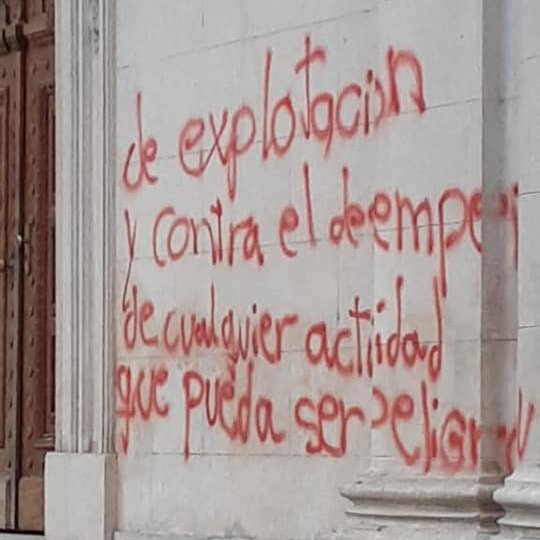 de explotación
y contra el deempe
de cualquier actiidad
que pueda ser